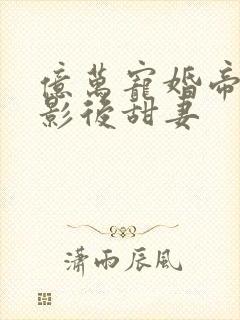 億萬寵婚帝
影後甜妻
瀟雨辰風